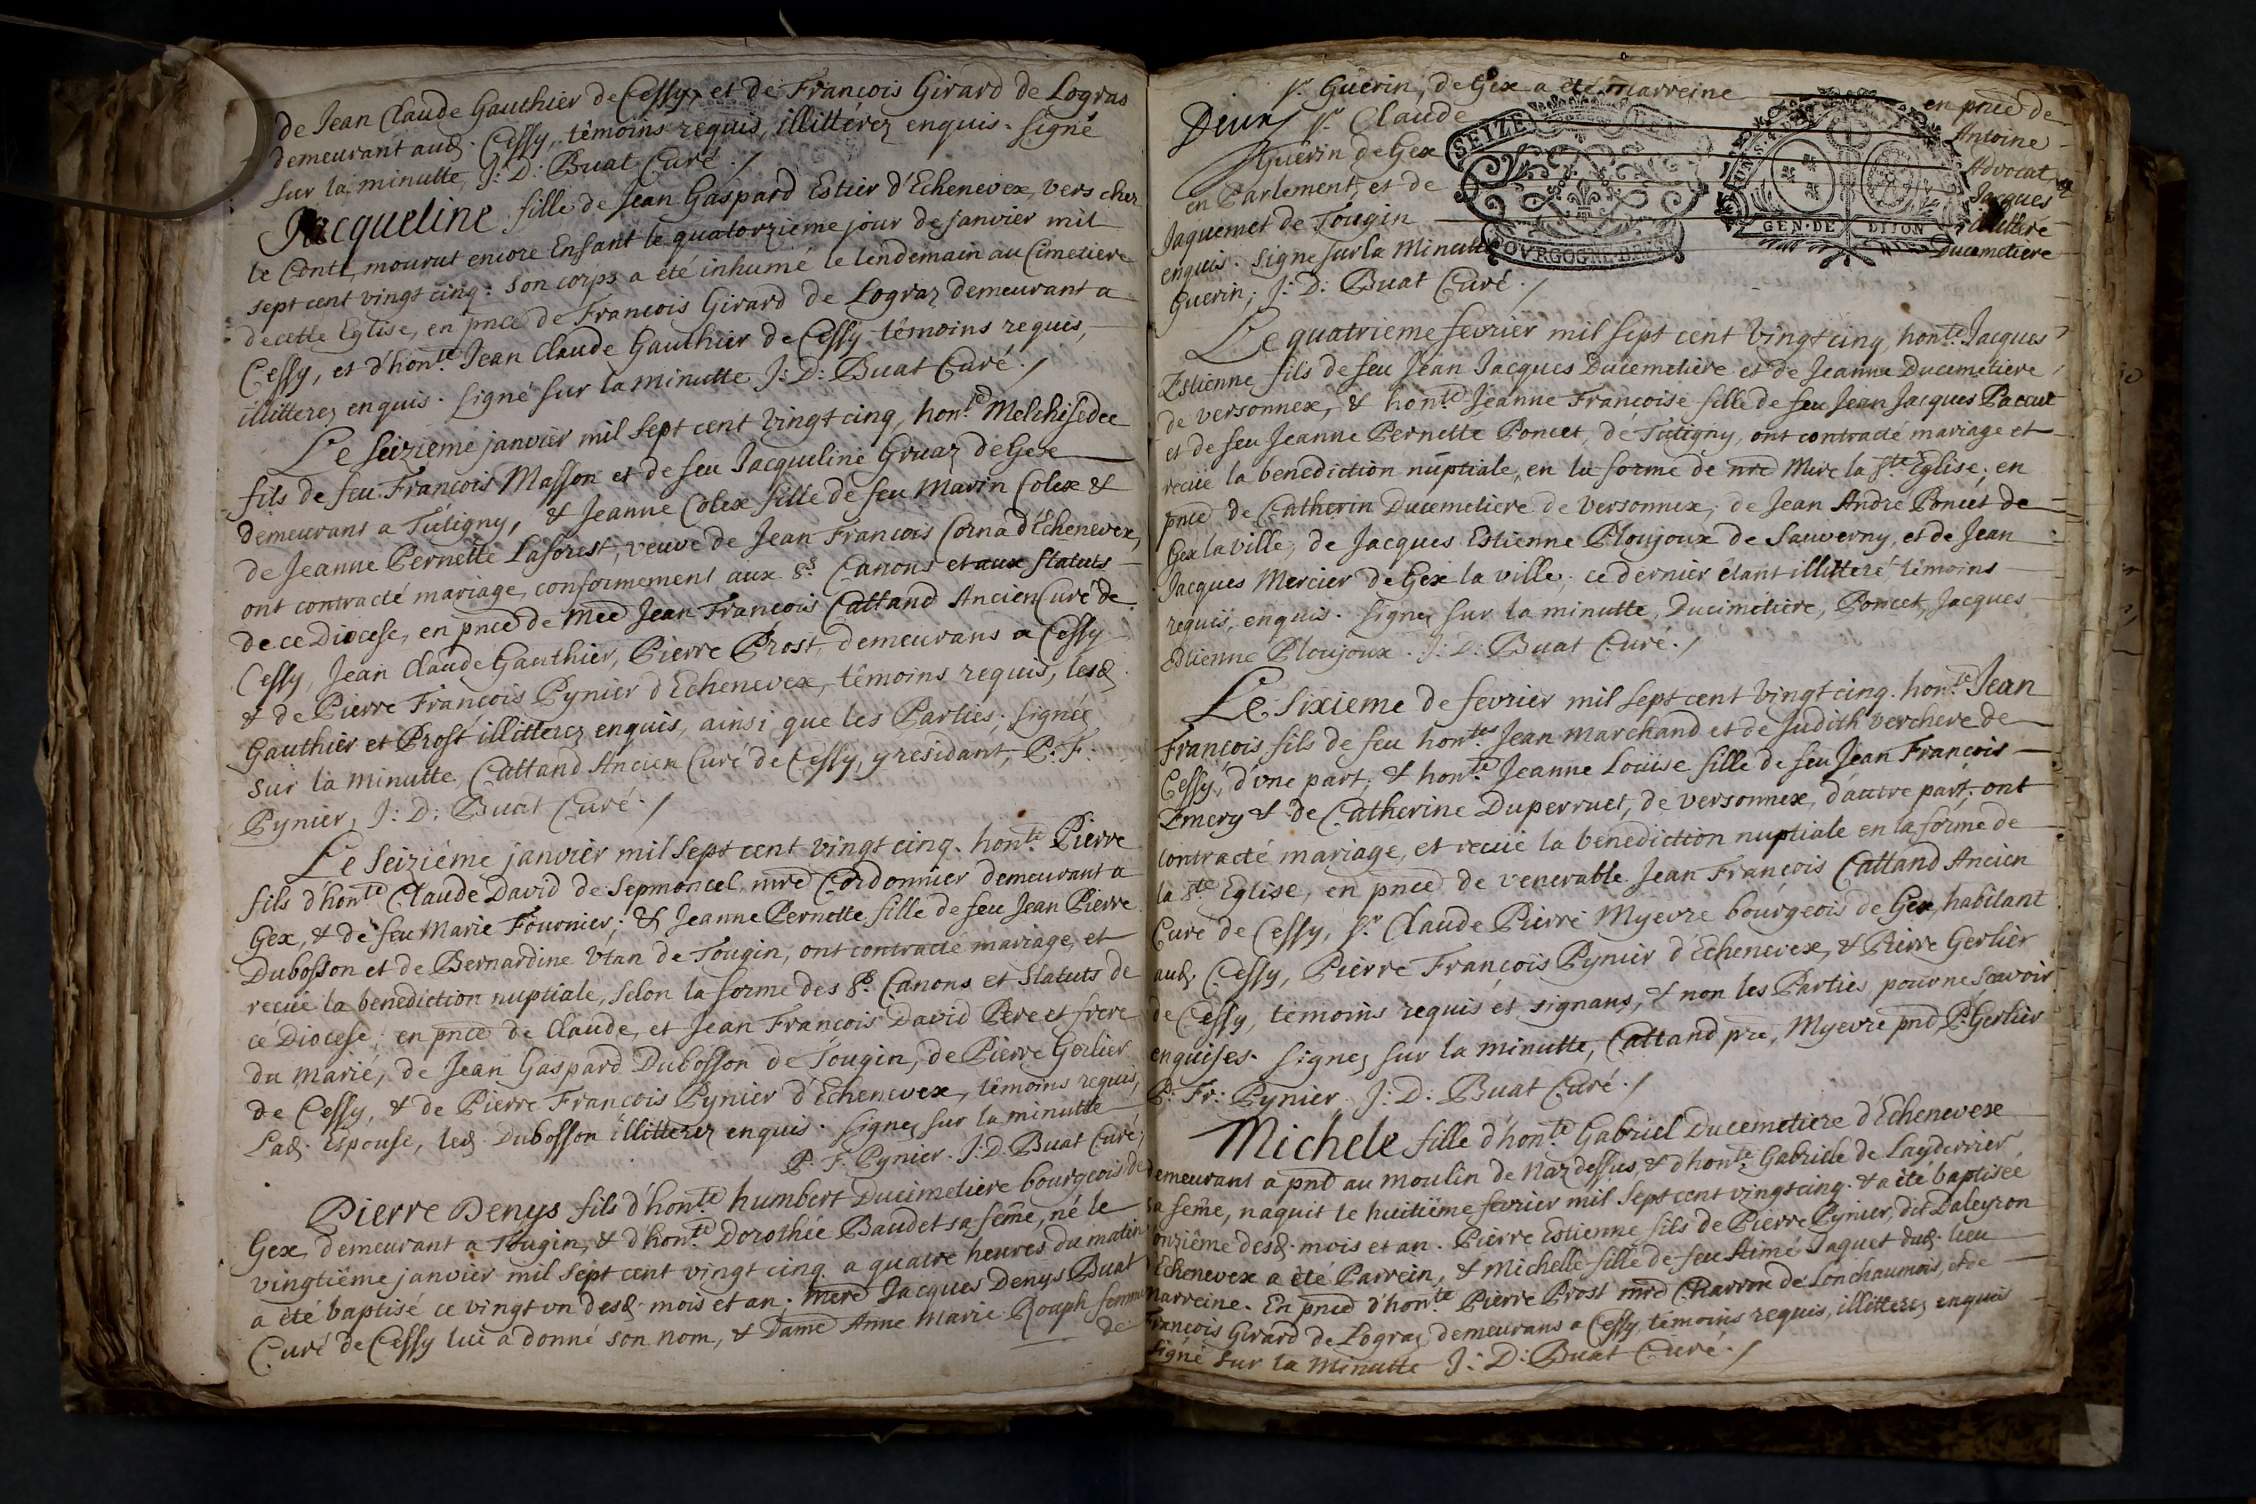 de Jean Claude Gauthier de Cessy, et de François Girard de Logras
demeurant aud. Cessy, témoins requis, illitterez enquis. signé
sur la minutte, J: D: Buat Curé ./
Jacqueline fille de Jean Gaspard Estier d'Echenevex, vers chez
le Conte, mourut encore Enfant le quatorzieme jour de janvier mil
sept cent vingt cinq: son corps a été inhumé le lendemain au Cimetiere
de cette Eglise, en pnce de François Girard de Lograz demeurant a
Cessy, et d'hon.te Jean Claude Gauthier de Cessy témoins requis,
illitterez enquis. signé sur la minutte J: D: Buat Curé ./
Le seizieme janvier mil sept cent vingt cinq, hon.te Melchisedec
fils de feu François Masson et de feu Jacqueline Gruaz de Gex
demeurans a Tutigny, & Jeanne Colex fille de feu Marin Colex &
de Jeanne Pernette Laforest, veuve de Jean François Corna d'Echenevex,
ont contracté mariage, conformement aux S.s Canons et aux statuts
de ce Diocese, en pnce de Mre Jean François Cattand Ancien Curé de
Cessy, Jean Claude Gauthier, Pierre Prost, demeurans a Cessy
& de Pierre François Pynier d'Echenevex, témoins requis, lesd.
Gauthier et Prost illitterez enquis, ainsi que les Parties; signée
sur la minutte, Cattand Ancien Curé de Cessy, y residant, P: F:
Pynier, J: D: Buat Curé ./
Le seizième janvier mil sept cent vingt cinq. hon.te Pierre
fils d'hon.te Claude David de Sepmoncel mre Cordonnier demeurant a
Gex, & de feu Marie Fournier; & Jeanne Pernette fille de feu Jean Pierre
Dubosson et de Bernardine Vtan de Tougin, ont contracté mariage, et
recüe la benediction nuptiale, selon la forme des S.s Canons et Statuts de
cé Diocese; en pnce de Claude, et Jean François David Pere et frere
du marié, de Jean Gaspard Dubosson de Tougin, de Pierre Gerlier
de Cessy, & de Pierre François Pynier d'Echenevex, témoins requis,
Lad. Espouse, led. Dubosson illitterez enquis. signez sur la minutte
P. F. Pynier. J: D. Buat Curé ./
Pierre Denys fils d'hon.te humbert Ducimetiere bourgeois de
Gex, demeurant a Tougin, & d'hon.te Dorothée Baudet sa feme, né le
vingtiême janvier mil sept cent vingt cinq a quatre heures du matin
a été baptisé ce vingt vn desd. mois et an; Mre Jacques Denys Buat
Curé de Cessy lui a donné son nom, & Dame Anne Marie Roaph femme
de
Sr Guerin, de Gex a été marreine en pnce de
Deux Sr Claude Antoine
Guérin de Gex Advocat
en Parlement, et de Jacques
Jaquemet de Tougin illittéré
enquis. signé sur la Minutte Ducimetiere
Guerin; J: D: Buat Curé ./
SEIZE
BOVRGOGNE BRESSE
GEN. DE DIJON
Le quatrieme fevrier mil sept cent vingt cinq, hon.te Jacques
Estienne fils de feu Jean Jacques Ducimetière et de Jeanne Ducimetiere
de versonnex, & hon.te Jeanne Françoise fille de feu Jean Jacques Pacaut
et de feu Jeanne Pernette Poncet, de Tutigny, ont contracté mariage et
recüe la benediction nuptiale, en la forme de nre Mere la S.te Eglise; en
pnce de Catherin Ducimetiere de versonnex, de Jean André Poncet de
Gex la ville, de Jacques Estienne Ploujoux de Sauverny, et de Jean
Jacques Mercier de Gex la ville; ce dernier étant illitteré, témoins
requis, enquis. signez sur la minutte, Ducimetiere, Poncet, Jacques
Estienne Ploujoux. J: D: Buat Curé ./
Le sixieme de fevrier mil sept cent vingt cinq. hon.te Jean
François fils de feu hon.te Jean Marchand et de Judith Verchere de
Cessy, d'vne part; & hon.te Jeanne Loüise fille de feu Jean François
Emery & de Catherine Duperruet, de versonnex, d'autre part, ont
contracté mariage, et recüe la benediction nuptiale en la forme de
la S.te Eglise, en pnce de venerable Jean François Cattand Ancien
Curé de Cessy, Sr Claude Pierre Myevre bourgeois de Gex, habitant
aud. Cessy, Pierre François Pynier d'Echenevex, & Pierre Gerlier
de Cessy, témoins requis et signans, & non les Parties pour ne scavoir
enquises. signez sur la minutte, Cattand pre, Myevre pnd, P. Gerlier
P: Fr: Pynier. J: D: Buat Curé ./
Michele fille d'hon.te Gabriel Ducimetiere d'Echenevex
demeurant a pnt au moulin de Naz dessus, & d'hon.te Gabriele de Layderrier
sa feme, naquit le huitiême fevrier mil sept cent vingt cinq. & a été baptisée
onziême desd. mois et an. Pierre Estienne fils de Pierre Pynier, dit Daleyron
d'Echenevex a été Parrein, & Michelle fille de feu Aimé Jaquet dud. lieu
marreine. En pnce d'hon.te Pierre Prost mre Charron de Lonchaumois, et de
François Girard de Lograz demeurans a Cessy, témoins requis, illitterez enquis
signé sur la Minutte J: D: Buat Curé ./